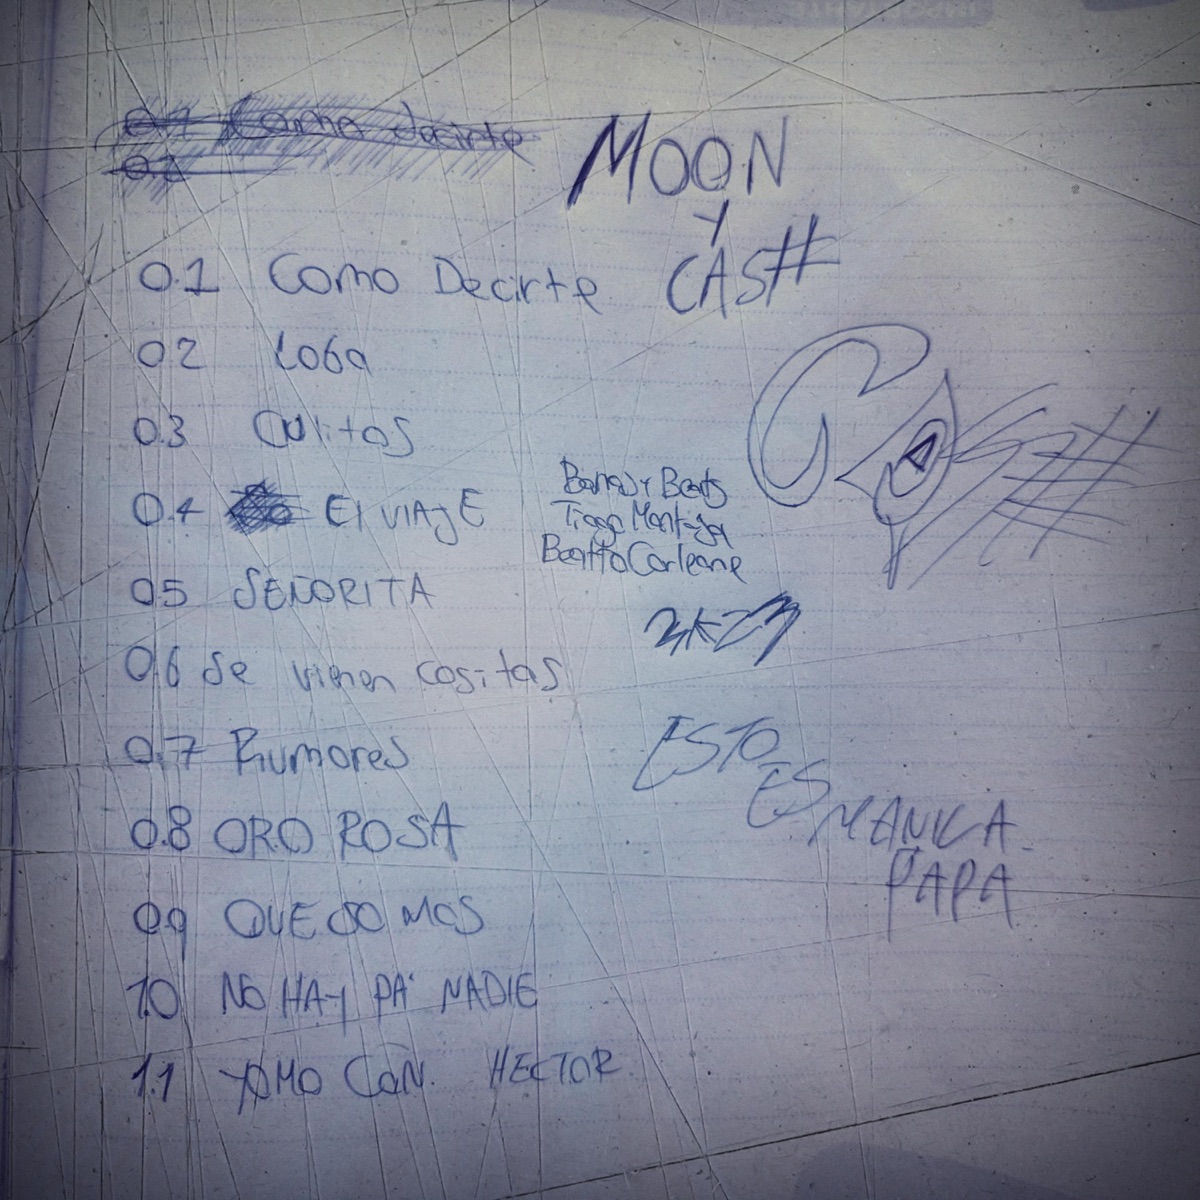 0.1 Como decirte
0.2
MOON
Y
CASH
0.1 Como Decirte
0.2 Loba
0.3 Culitos
0.4 El VIAJE
0.5 SEÑORITA
0.6 Se vienen cositas
0.7 Rumores
0.8 ORO ROSA
0.9 QUE SOMOS
1.0 NO HAY PA' NADIE
1.1 YAMO CON HECTOR
Beats
Tiago
Corleone
2K23
ESTO
ES
MANICA
PAPA